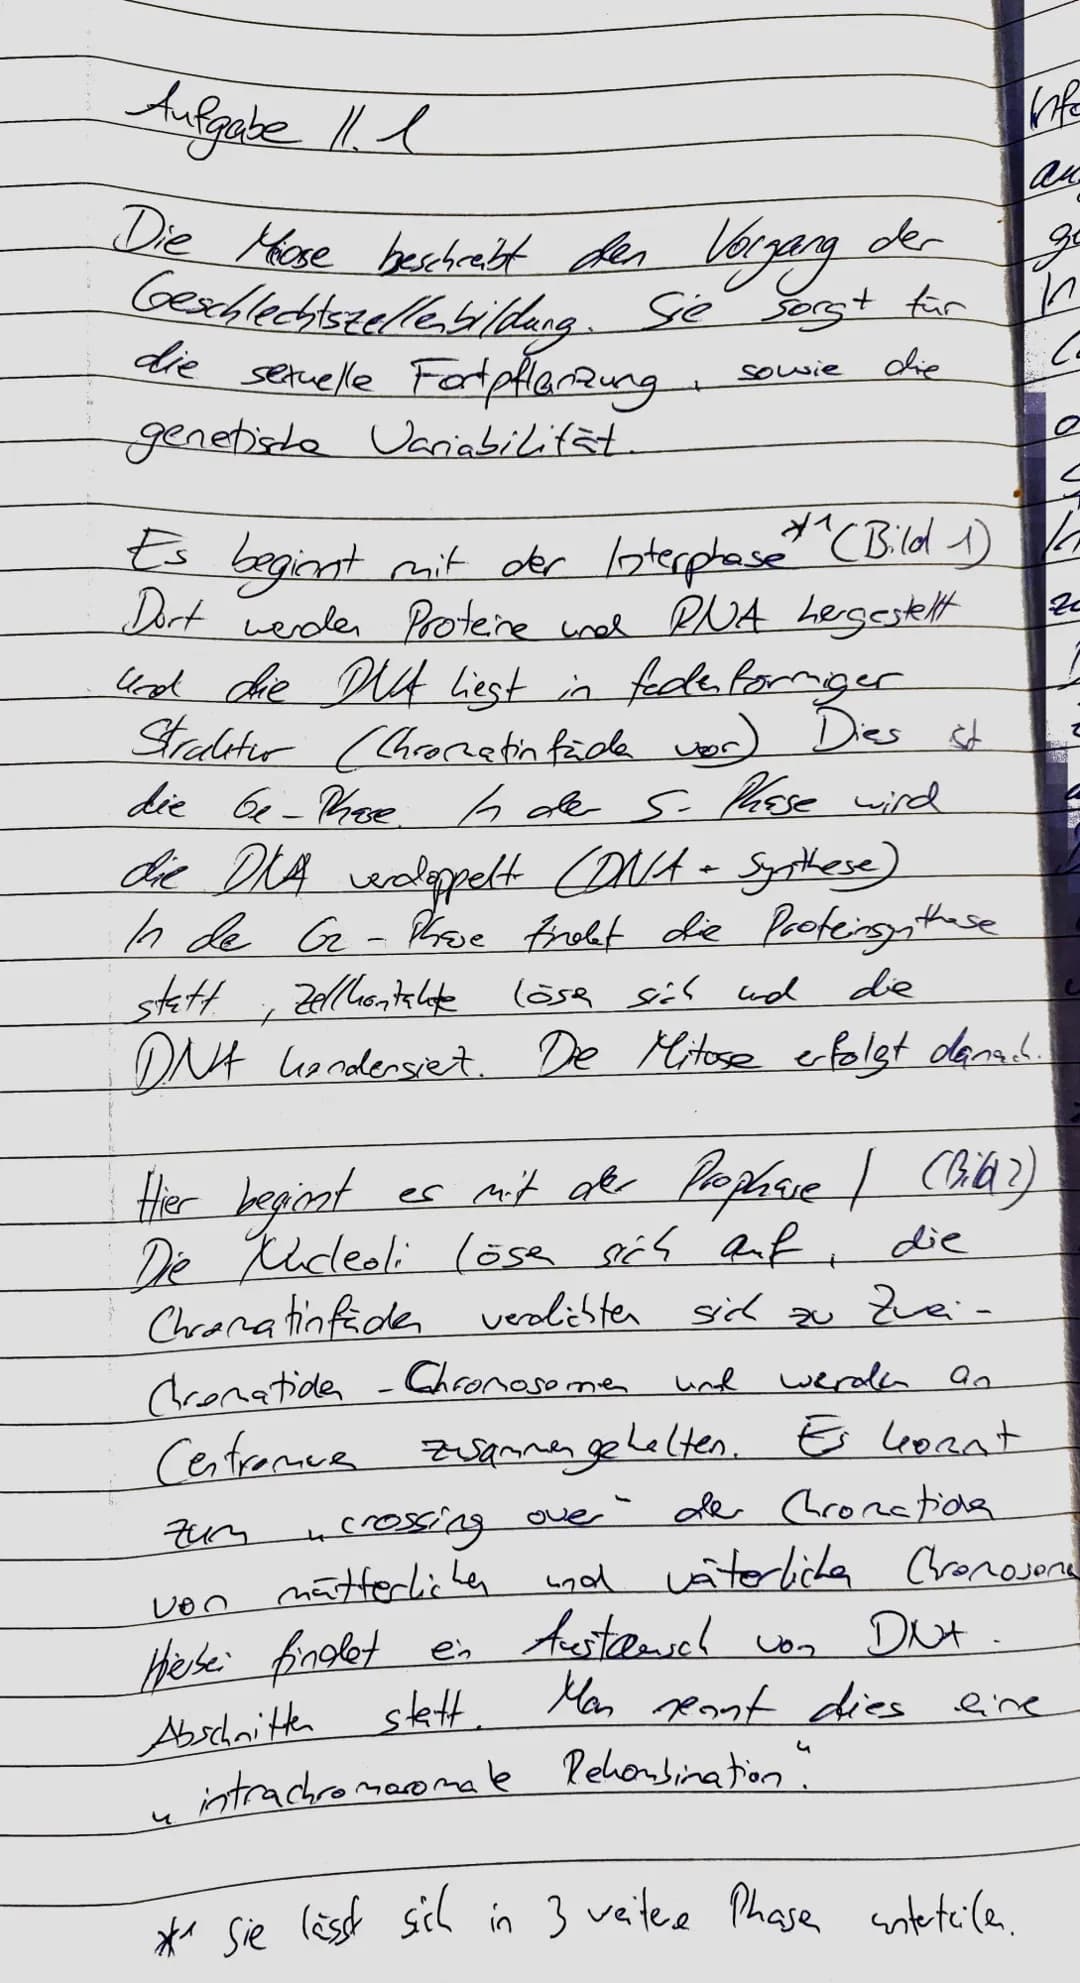 Aufgabe II. 1
Die Meiose beschreibt den Vorgang der
Geschlechtszellenbildung. Sie sorgt für
die sexuelle Fortpflanzung, sowie die
genetische Variabilität.
Es beginnt mit der Interphase *1 (Bild 1)
Dort werden Proteine und RNA hergestellt
und die DNA liegt in fadenförmiger
Struktur (Chromatinfäden vor) Dies ist
die G1-Phase. In der S-Phase wird
die DNA verdoppelt (DNA-Synthese)
In der G2-Phase findet die Proteinsynthese
statt, Zellkontakte lösen sich und die
DNA kondensiert. Die Mitose erfolgt danach.
Hier beginnt es mit der Prophase I (Bild 2)
Die Nucleoli lösen sich auf, die
Chromatinfäden verdichten sich zu Zwei-
Chromatiden-Chromosomen und werden an
Centromeren zusammengehalten. Es kommt
zum "crossing over" der Chromatiden
von mütterlichen und väterlichen Chromosomen
Hierbei findet ein Austausch von DNA-
Abschnitten statt. Man nennt dies eine
"intrachromosomale Rekombination".
*1 Sie lässt sich in 3 weitere Phasen unterteilen.